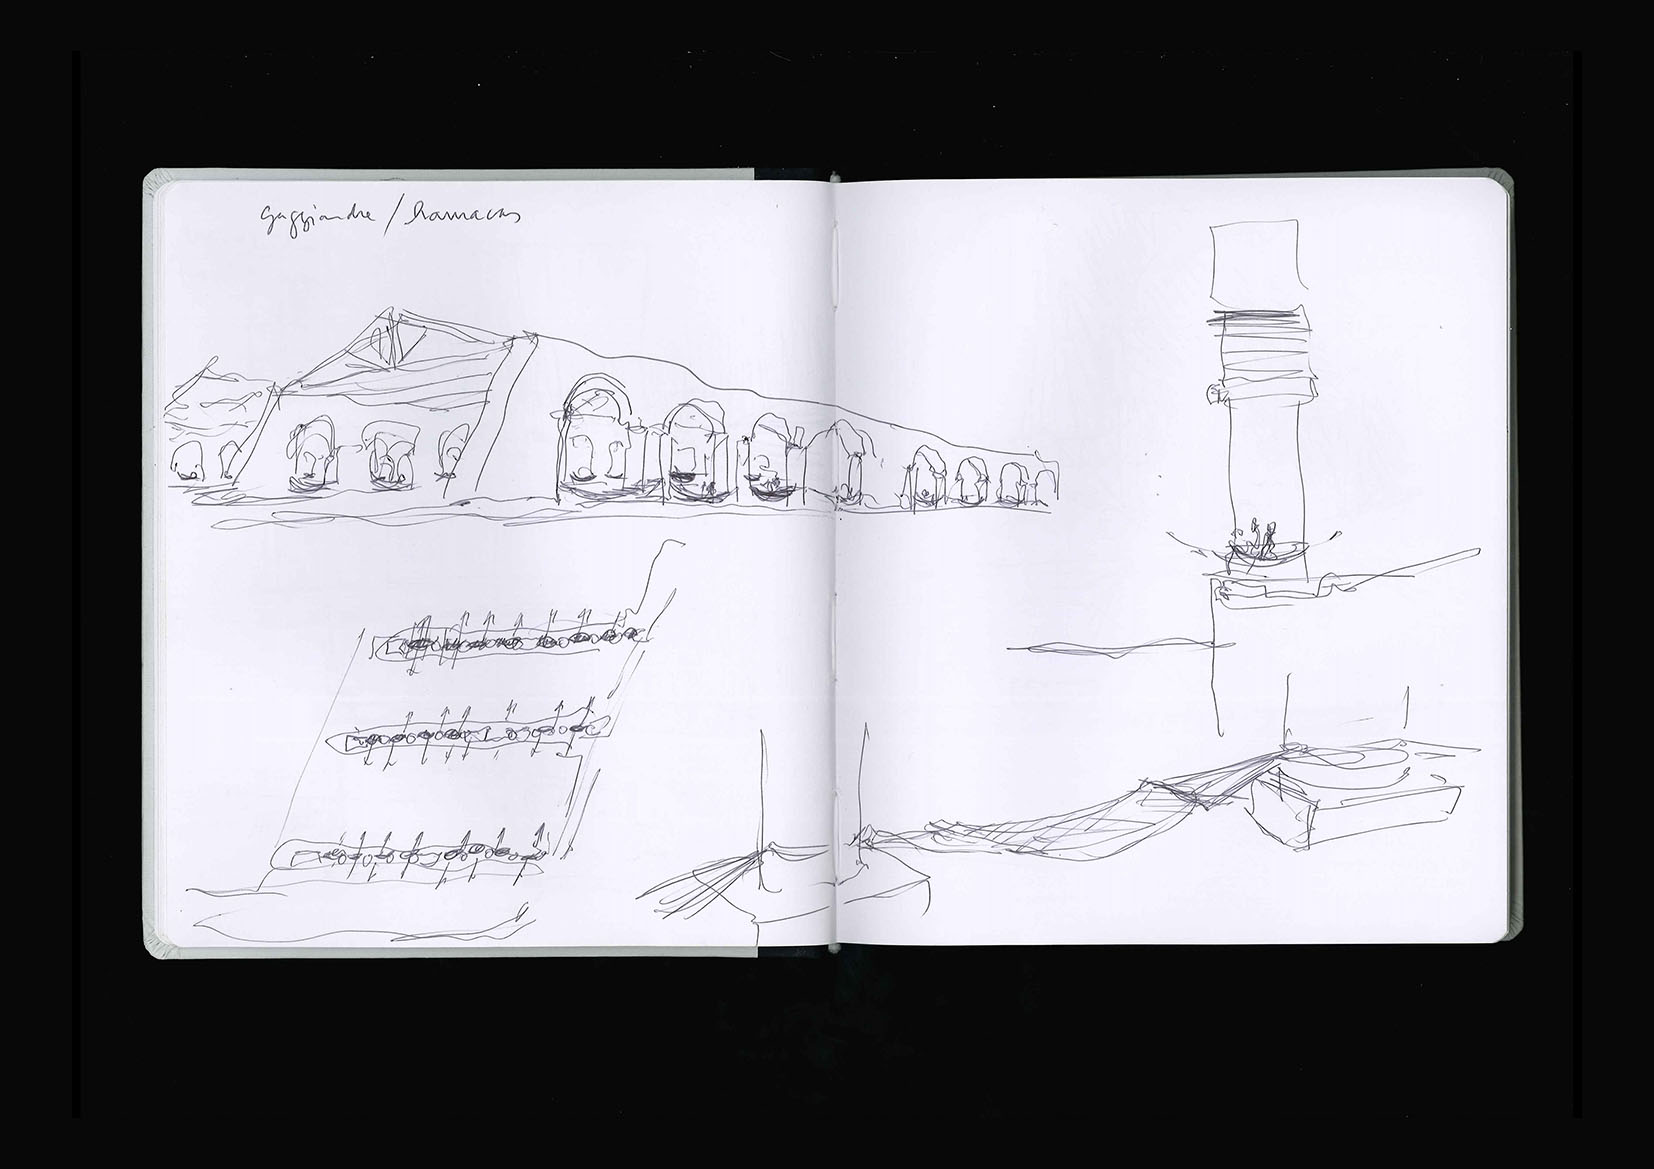 gaggiandre / hamacas